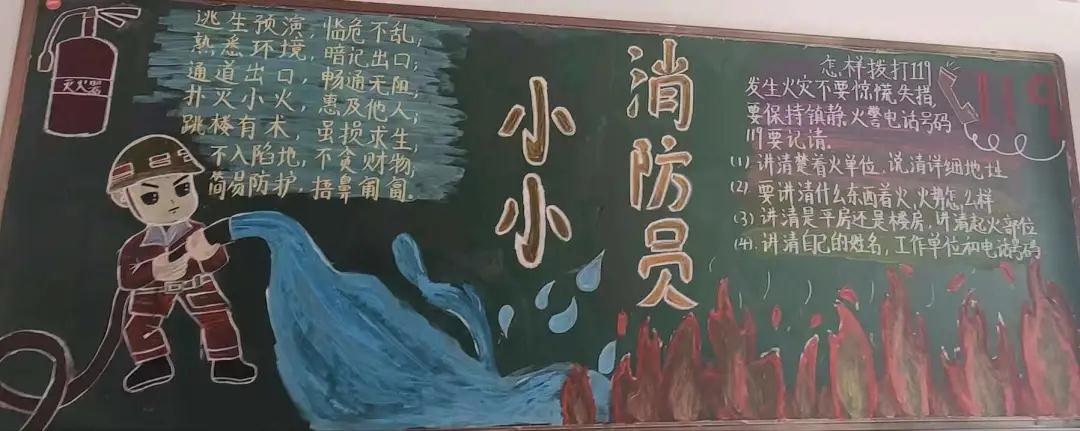 灭火器
逃生预演，临危不乱；
熟悉环境，暗记出口；
通道出口，畅通无阻
扑灭小火，惠及他人；
跳楼有术，虽损求生
不入陷地，不贪财物
简易防护，捂鼻匍匐．
小小
消防员
怎样拨打119
发生火灾不要惊慌失措，
要保持镇静，火警电话号码
119要记请．
(1) 讲清楚着火单位，说清详细地址
(2) 要讲清什么东西着火，火势怎么样
(3) 讲清是平房还是楼房，讲清起火部位
(4). 讲清自己的姓名，工作单位和电话号码
119